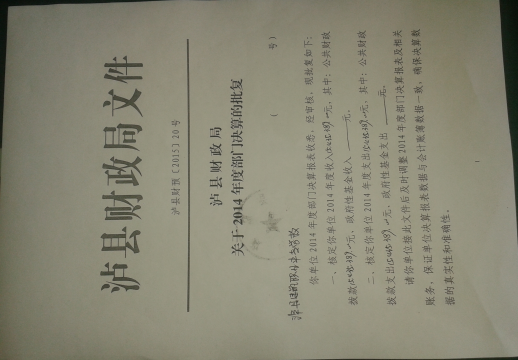 泸县财政局文件
泸县财预〔2015〕20号
泸县财政局
关于2014年度部门决算的批复
（ 号）
你单位2014年度部门决算报表收悉，经审核，现批复如下：
一、核定你单位2014年度收入 元，其中：公共财政
拨款 元、政府性基金收入 元。
二、核定你单位2014年度支出 元，其中：公共财政
拨款支出 元、政府性基金支出 元。
请你单位接此文件后及时调整2014年度部门决算报表及相关
账务，保证单位决算报表数据与会计账簿数据一致，确保决算数
据的真实性和准确性。